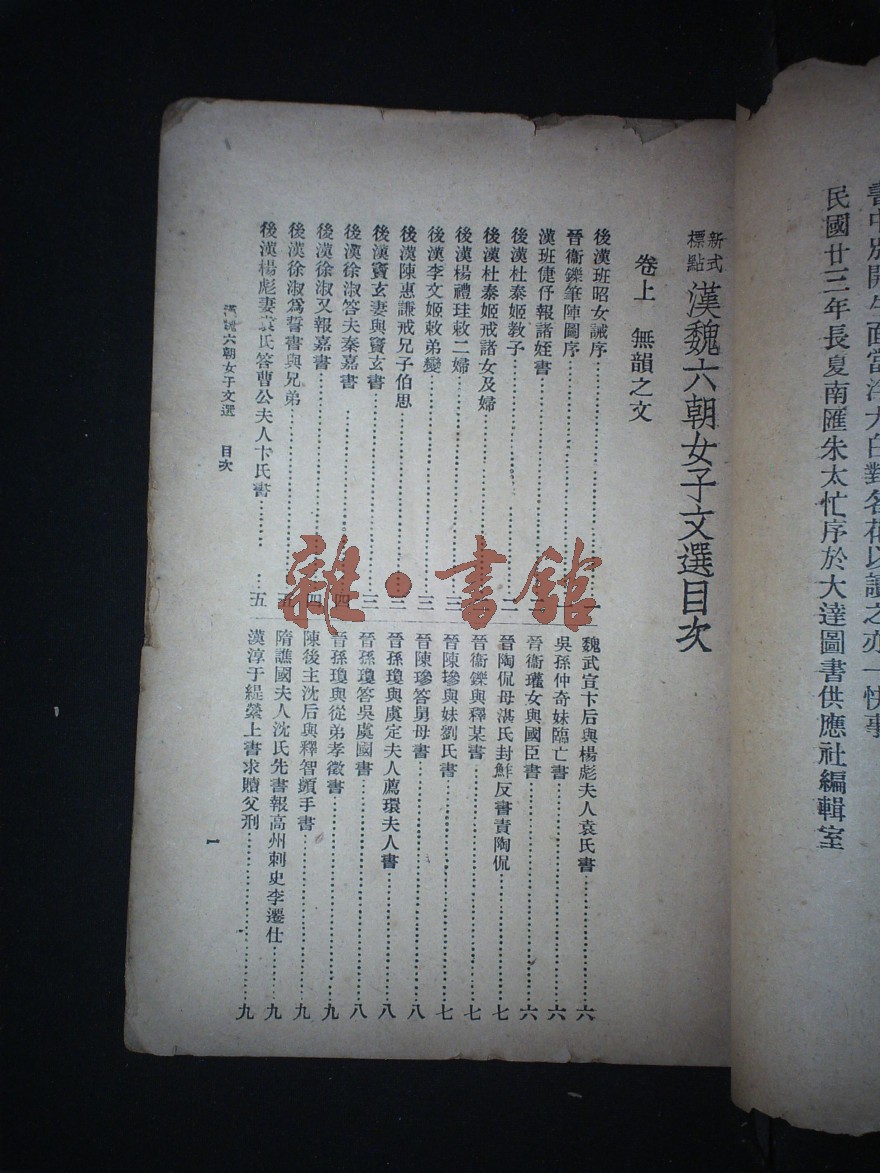 書中別開生面當浮大白對名花以讀之亦一快事
民國廿三年長夏南匯朱太忙序於大達圖書供應社編輯室
新式標點 漢魏六朝女子文選目次
卷上 無韻之文
後漢班昭女誡序 一
晉衞鑠筆陣圖序 一
漢班倢伃報諸姪書 二
後漢杜泰姬教子 二
後漢杜泰姬戒諸女及婦
後漢楊禮珪敕二婦 三
後漢李文姬敕弟燮 三
後漢陳惠謙戒兄子伯思 三
後漢竇玄妻與竇玄書 三
後漢徐淑答夫秦嘉書 四
後漢徐淑又報嘉書 四
後漢徐淑爲誓書與兄弟 五
後漢楊彪妻袁氏答曹公夫人卞氏書 五
魏武宣卞后與楊彪夫人袁氏書 六
吳孫仲奇妹臨亡書 六
晉衞瓘女與國臣書 六
晉陶侃母湛氏封鮓反書責陶侃 七
晉衞鑠與釋某書 七
晉陳㻸與妹劉氏書 七
晉陳㻸答舅母書 八
晉孫瓊與虞定夫人薦環夫人書 八
晉孫瓊答吳虞國書 八
晉孫瓊與從弟孝徵書 九
陳後主沈后與釋智顗手書 九
隋譙國夫人沈氏先書報高州刺史李遷仕 九
漢淳于緹縈上書求贖父刑 九
漢魏六朝女子文選 目次
一
雜·書館